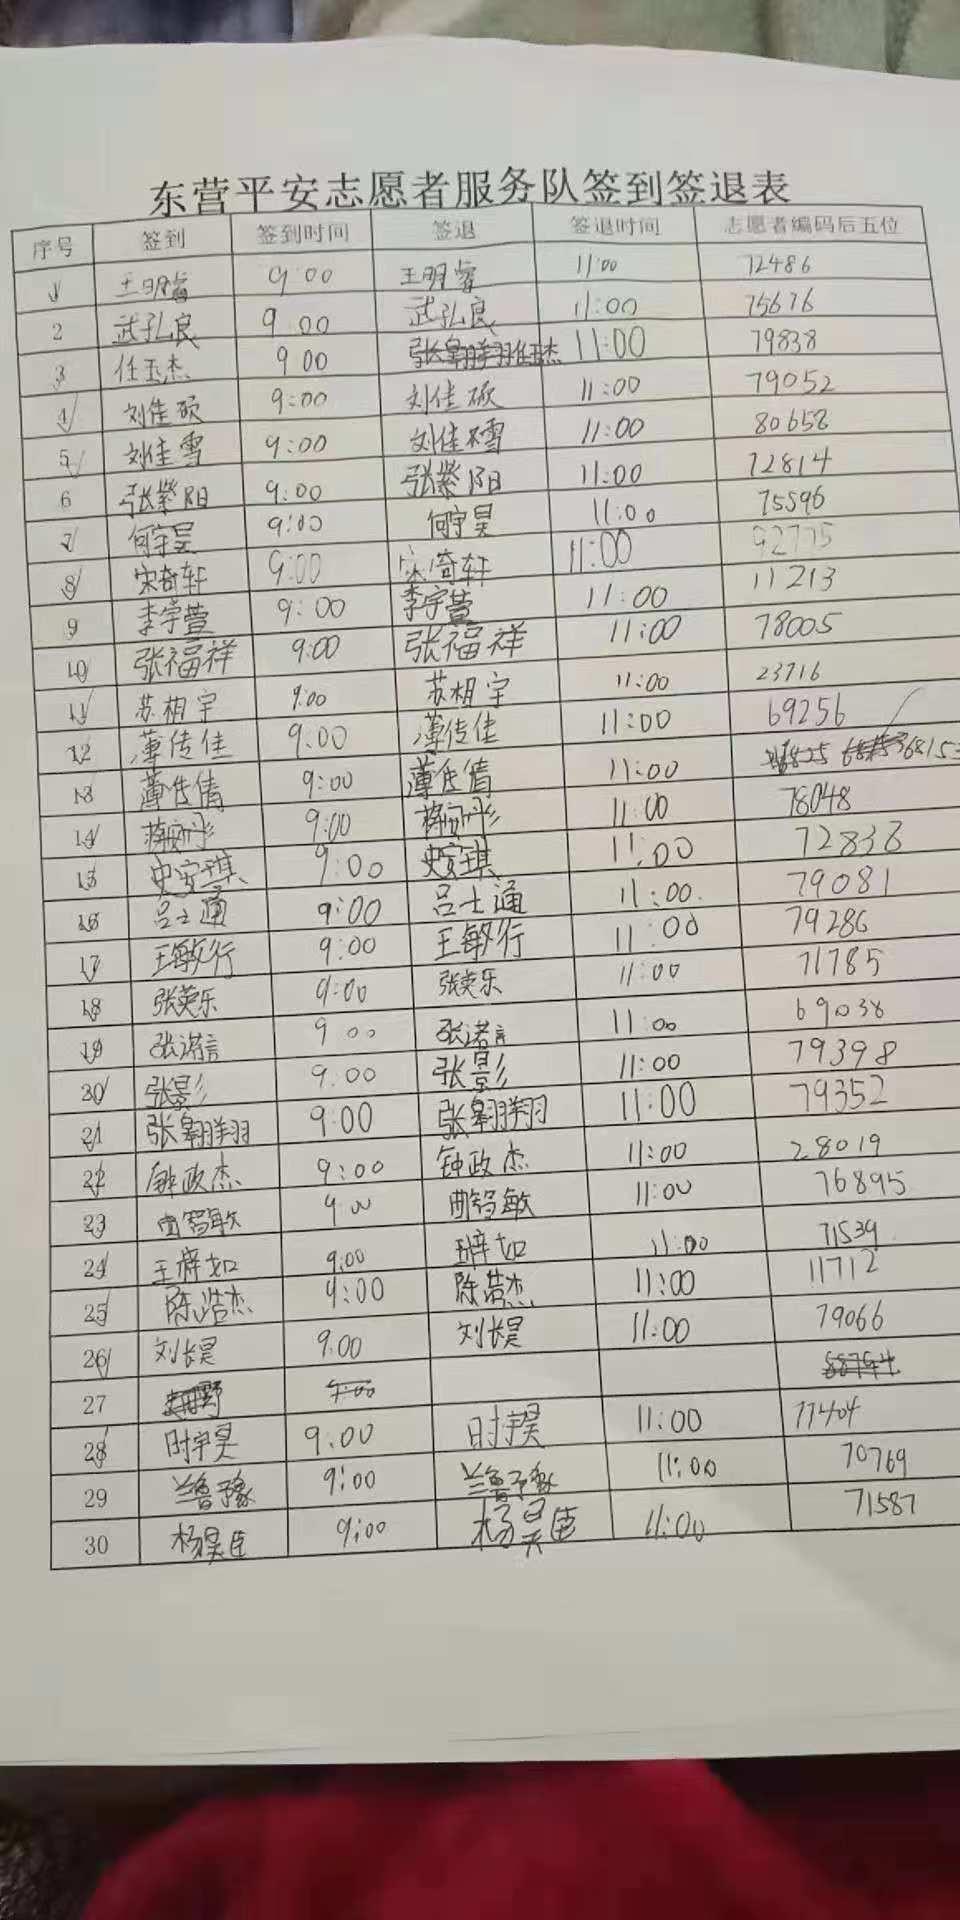 东营平安志愿者服务队签到签退表
序号 签到 签到时间 签退 签退时间 志愿者编码后五位
1 王明睿 9:00 王明睿 11:00 72486
2 武弘良 9:00 武弘良 11:00 75676
3 任玉杰 9:00 任玉杰 11:00 79838
4 刘佳硕 9:00 刘佳硕 11:00 79052
5 刘佳雪 9:00 刘佳雪 11:00 80658
6 张紫阳 9:00 张紫阳 11:00 72814
7 何宇昊 9:00 何宇昊 11:00 75596
8 宋奇轩 9:00 宋奇轩 11:00 92775
9 李宇萱 9:00 李宇萱 11:00 11213
10 张福祥 9:00 张福祥 11:00 78005
11 苏相宇 9:00 苏相宇 11:00 23716
12 薄传佳 9:00 薄传佳 11:00 69256
13 薄佳倩 9:00 薄佳倩 11:00 68153
14 9:00 11:00 78048
15 史安琪 9:00 史安琪 11:00 72838
16 吕士通 9:00 吕士通 11:00 79081
17 王敏行 9:00 王敏行 11:00 79286
18 张英乐 9:00 张英乐 11:00 71785
19 张诺言 9:00 张诺言 11:00 69038
20 张影 9:00 张影 11:00 79398
21 张翱翔 9:00 张翱翔 11:00 79352
22 钟政杰 9:00 钟政杰 11:00 28019
23 9:00 11:00 76895
24 9:00 11:00 71539
25 陈浩杰 9:00 陈浩杰 11:00 11712
26 刘长昊 9:00 刘长昊 11:00 79066
27 9:00
28 时宇昊 9:00 时宇昊 11:00 77404
29 兰鲁豫 9:00 11:00 70769
30 杨昊臣 9:00 杨昊臣 11:00 71587